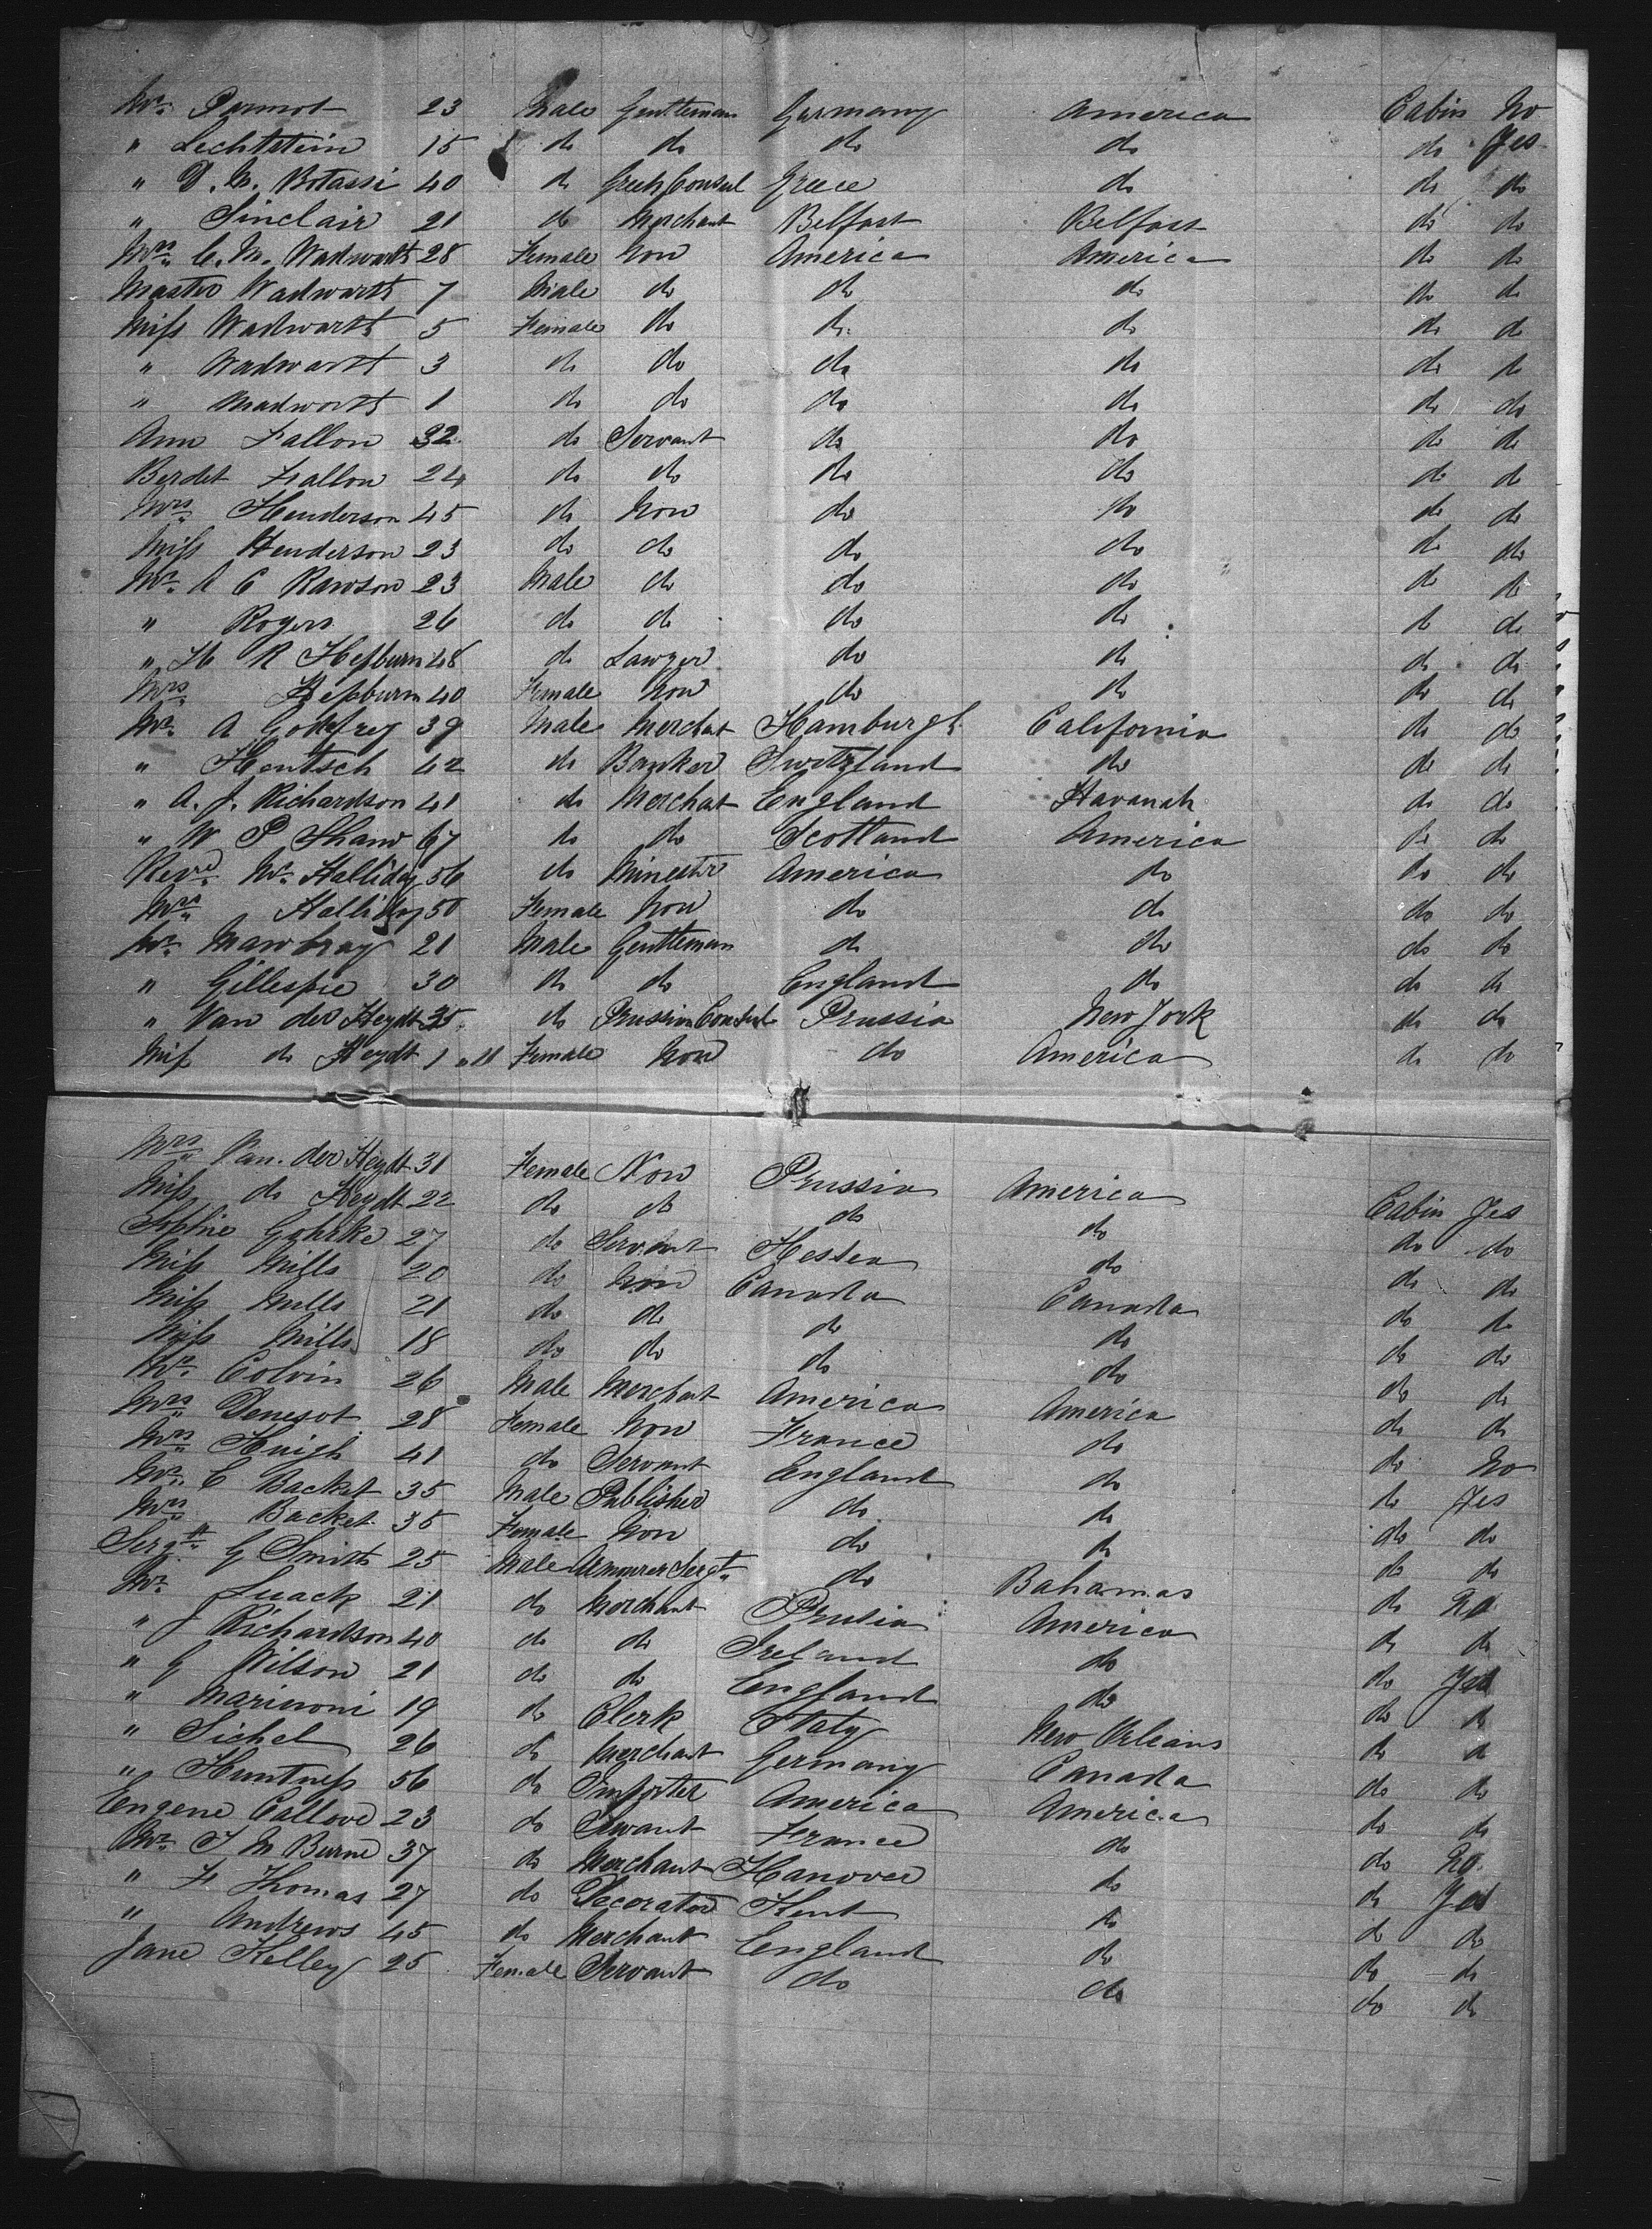 Mr. Parmot 23 Male Gentleman Germany America Cabin No
" Lechtstein 15 do do do do do Yes
" D. N. Botassi 40 do Greek Consul Greece do do do
" Sinclair 21 do Merchant Belfast Belfast do do
Mrs. C. M. Wadworth 28 Female Non America America do do
Master Wadworth 7 Male do do do do do
Miss Wadworth 5 Female do do do do do
" Wadworth 3 do do do do do do
" Wadworth 1 do do do do do do
Ann Fallon 32 do Servant do do do do
Berdet Fallon 24 do do do do do do
Mrs. Henderson 45 do Non do do do do
Miss Henderson 23 do do do do do do
Mr. A C Rawson 23 Male do do do do do
" Rogers 26 do do do do do do
" H R Hepburn 48 do Lawyer do do do do
Mrs. Hepburn 40 Female Non do do do do
Mr. A Godfrey 39 Male Merchat Hamburgh California do do
" Hentsch 42 do Banker Switzland do do do
" A. J. Richardson 41 do Merchat England Havanah do do
" W P Shaw 67 do do Scotland America do do
Revd. Mr. Halliday 56 do Minester America do do do
Mrs. Halliday 50 Female Non do do do do
Mr. Mawbray 21 Male Gentleman do do do do
" Gillespie 30 do do England do do do
" Van der Heydt 35 do Prussian Consul Prussia New York do do
Miss do Heydt 1 Female Non do America do do
Mrs. Van. der Heydt 31 Female Non Prussia America Cabin Yes
Miss do Heydt 22 do do do do do do
Sophie Gohrke 27 do Servant Hessen do do do
Miss Mills 20 do Non Canada Canada do do
Miss Mills 21 do do do do do do
Miss Mills 18 do do do do do do
Mr. Colvin 26 Male Merchant America America do do
Mrs. Denesot 28 Female Non France do do No
Mrs. Huigh 41 do Servant England do do Yes
Mr. C Backet 35 Male Publisher do do do do
Mrs. Backet 35 Female Non do do do do
Sergt. G Smith 25 Male Armourer Sergt. do Bahamas do No
Mr. Luack 21 do Merchant Prusia America do do
" J Richardson 40 do do Ireland do do Yes
" G Wilson 21 do do England do do do
" Marinoni 19 do Clerk Italy New Orleans do do
" Sichel 26 do Merchant Germany Canada do do
" Huntness 56 do Importer America America do do
Eugene Callove 23 do Servant France do do No
Mr. J M Burne 37 do Merchant Hanover do do Yes
" F Thomas 27 do Decorator Kent do do do
" Andrews 45 do Merchant England do do do
Jane Kelley 25 Female Servant do do do do